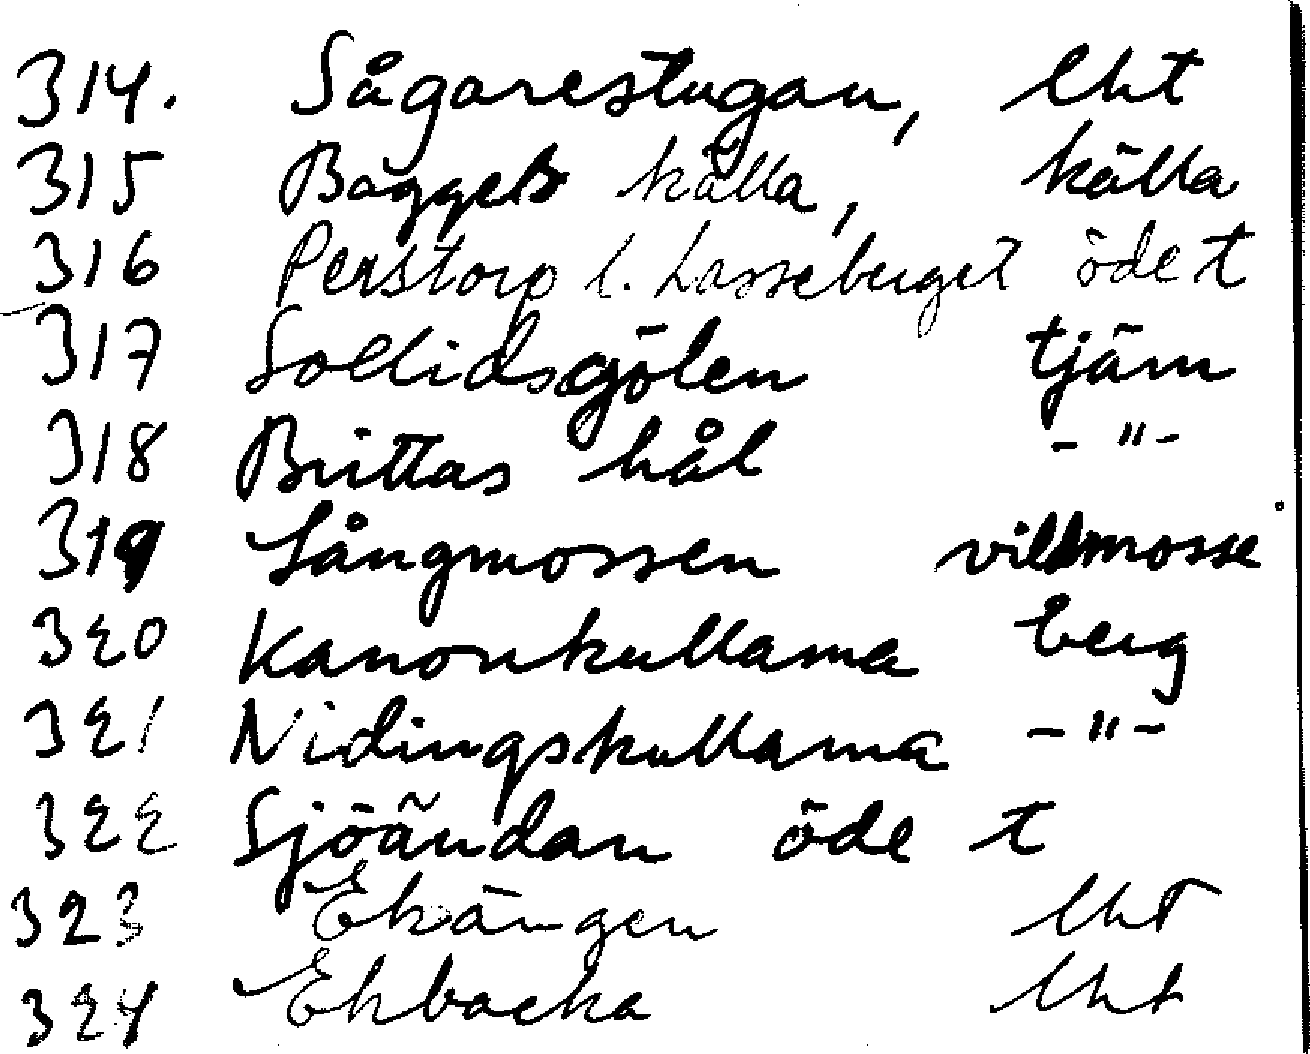 314. Sågarestugan, lht
315 Baggets källa, källa
316 Perstorp l. Lasseberget öde t
317 Sollidsgölen tjärn
318 Brittas hål -"-
319 Långmossen vildmosse
320 Kanonkullarna berg
321 Nidingskullarna -"-
322 Sjöändan öde t
323 Ekängen lht
324 Ekbacka lht